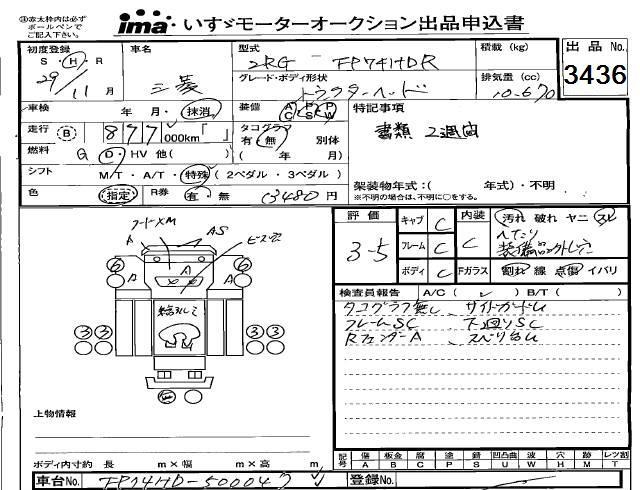 ※赤太枠内は必ず
ボールペンで
ご記入下さい。
ima いすゞモーターオークション出品申込書
初度登録 車名 型式 積載(kg) 出品No.
S・H・R 三菱 2RG - FP74HDR 3436
29年 グレード・ボディ形状 排気量(cc)
11月 トラクターヘッド 10,670
車検 年 月・抹消 装備 A/C P/S P/W 特記事項
走行 B 877,000km「 」 タコグラフ 有・無 別体 書類 2週間
燃料 G D・HV 他( )
シフト M/T・A/T・特殊(2ペダル・3ペダル) 架装物年式:( 年式)・不明
色 指定 R券 有・無 13480円 ※不明の場合は、不明に○をする。
評価 キャブ C 内装 汚れ 破れ ヤニ スレ
3-5 フレーム C C へたり
装備品外し穴
ボディ C Fガラス 割れ 線 点傷 イバリ
フードXM
A AS ビス穴
6 A A 6
A
3 3 3 3
検査員報告 A/C( ✓ ) B/T( )
タコグラフ無し サイドガードU
フレームSC 下回りSC
RフェンダーA スベリ台U
上物情報
ボディ内寸約 長 m×幅 m×高 m
記号 傷 板金 腐 塗 錆 凹凸曲 波 穴 跡 レツ割
A B C P S U W H M T
車台No. FP74HD-500047 登録No.